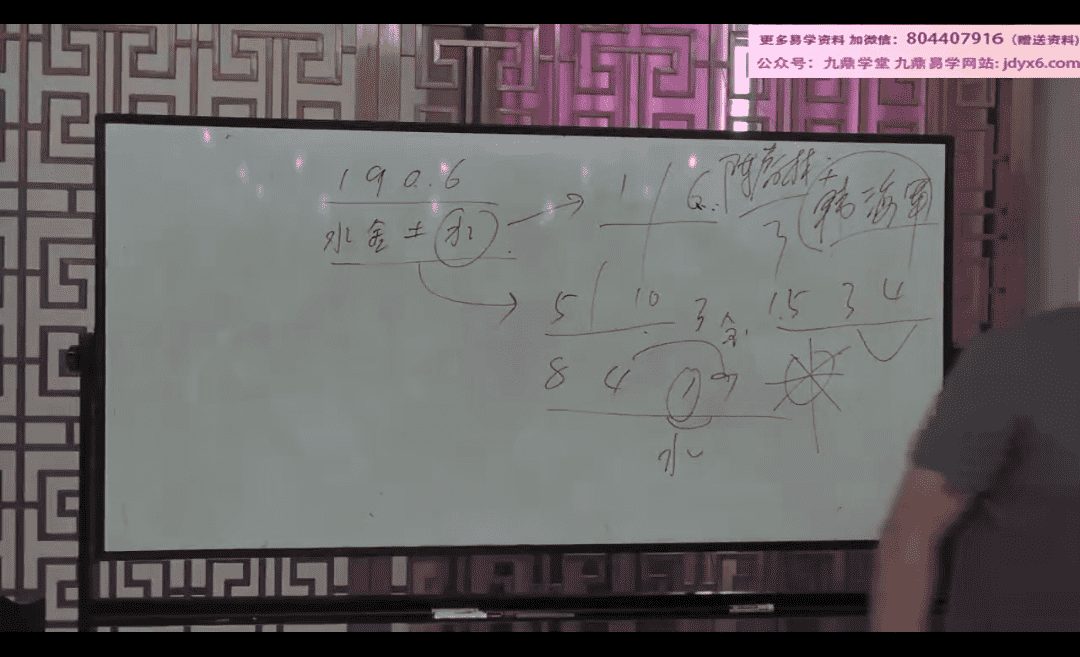 更多易学资料 加微信：804407916（赠送资料)
公众号：九鼎学堂 九鼎易学网站: jdyx6.com
190.6
水金土水
1 6
3
韩海军
5 10 3 金 1.5 3 4
8 4 1 9
水